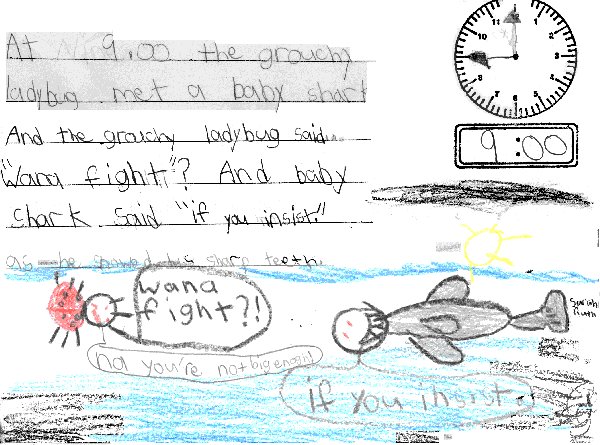 At 9:00 the grouchy
ladybug met a baby shark
And the grouchy ladybug said
"Wana fight"? And baby
shark said "if you insist."
as he showed his sharp teeth.
12
11
1
10
2
9
3
8
4
7
5
6
9:00
wana
fight?!
na you're not big enoght
if you insist.
Sarah
Ruth